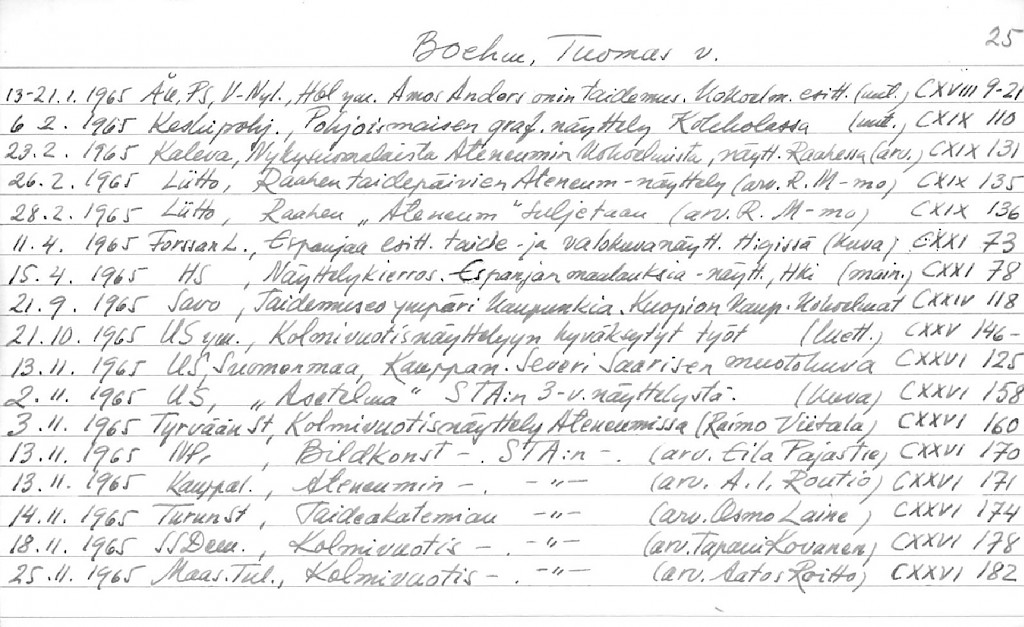 25
Boehm, Tuomas v.
13-21.1. 1965 ÅU, PS, V-Nyl., Hbl ym. Amos Andersonin taidemus. kokoelm. esitt. (mt.) CXVIII 9-21
6 2. 1965 Keskipohj., Pohjoismaisen graf. näyttely Kokkolassa (mt.) CXIX 110
23.2. 1965 Kaleva, Nykysuomalaista Ateneumin kokoelmista, näytt. Raahessa (arv.) CXIX 131
26.2. 1965 Liitto, Raahen taidepäivien Ateneum-näyttely (arv. R. M-mo) CXIX 135
28.2. 1965 Liitto, Raahen „Ateneum" suljetaan (arv. R. M-mo) CXIX 136
11.4. 1965 Forssan L., Espanjaa esitt. taide- ja valokuvanäytt. H:gissä (kuva) CXXI 73
15.4. 1965 HS, Näyttelykierros. Espanjan maalauksia-näytt., Hki (main.) CXXI 78
21.9. 1965 Savo, Taidemuseo ympäri kaupunkia. Kuopion kaup. kokoelmat CXXIV 118
21.10. 1965 US ym., Kolmivuotisnäyttelyyn hyväksytyt työt (luett.) CXXV 146-
13.11. 1965 US, Suomenmaa, Kauppan. Severi Saarisen muotokuva CXXVI 125
2.11. 1965 US, „Asetelma" STA:n 3-v. näyttelystä. (kuva) CXXVI 158
3.11. 1965 Tyrvään St, Kolmivuotisnäyttely Ateneumissa (Raimo Viitala) CXXVI 160
13.11. 1965 NPr, Bildkonst -. STA:n -. (arv. Eila Pajastie) CXXVI 170
13.11. 1965 Kauppal., Ateneumin -. -"- (arv. A.I. Routio) CXXVI 171
14.11. 1965 Turun St, Taideakatemian -"- (arv. Osmo Laine) CXXVI 174
18.11. 1965 SSDem., Kolmivuotis -. -"- (arv. Tapani Kovanen) CXXVI 178
25.11. 1965 Maas. Tul., Kolmivuotis -. -"- (arv. Aatos Roitto) CXXVI 182